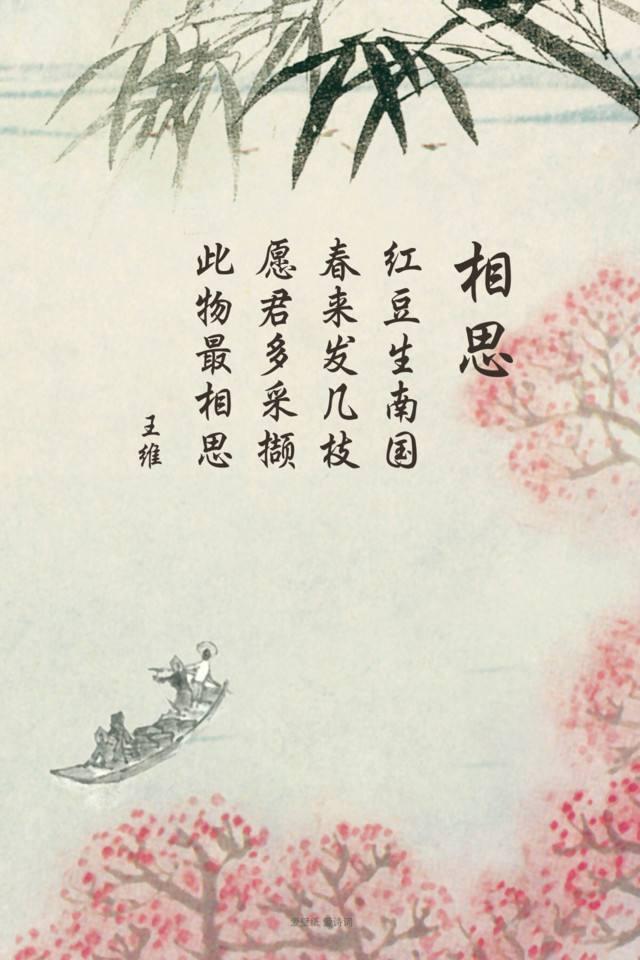 相思
红豆生南国
春来发几枝
愿君多采撷
此物最相思
王维
爱壁纸 爱诗词